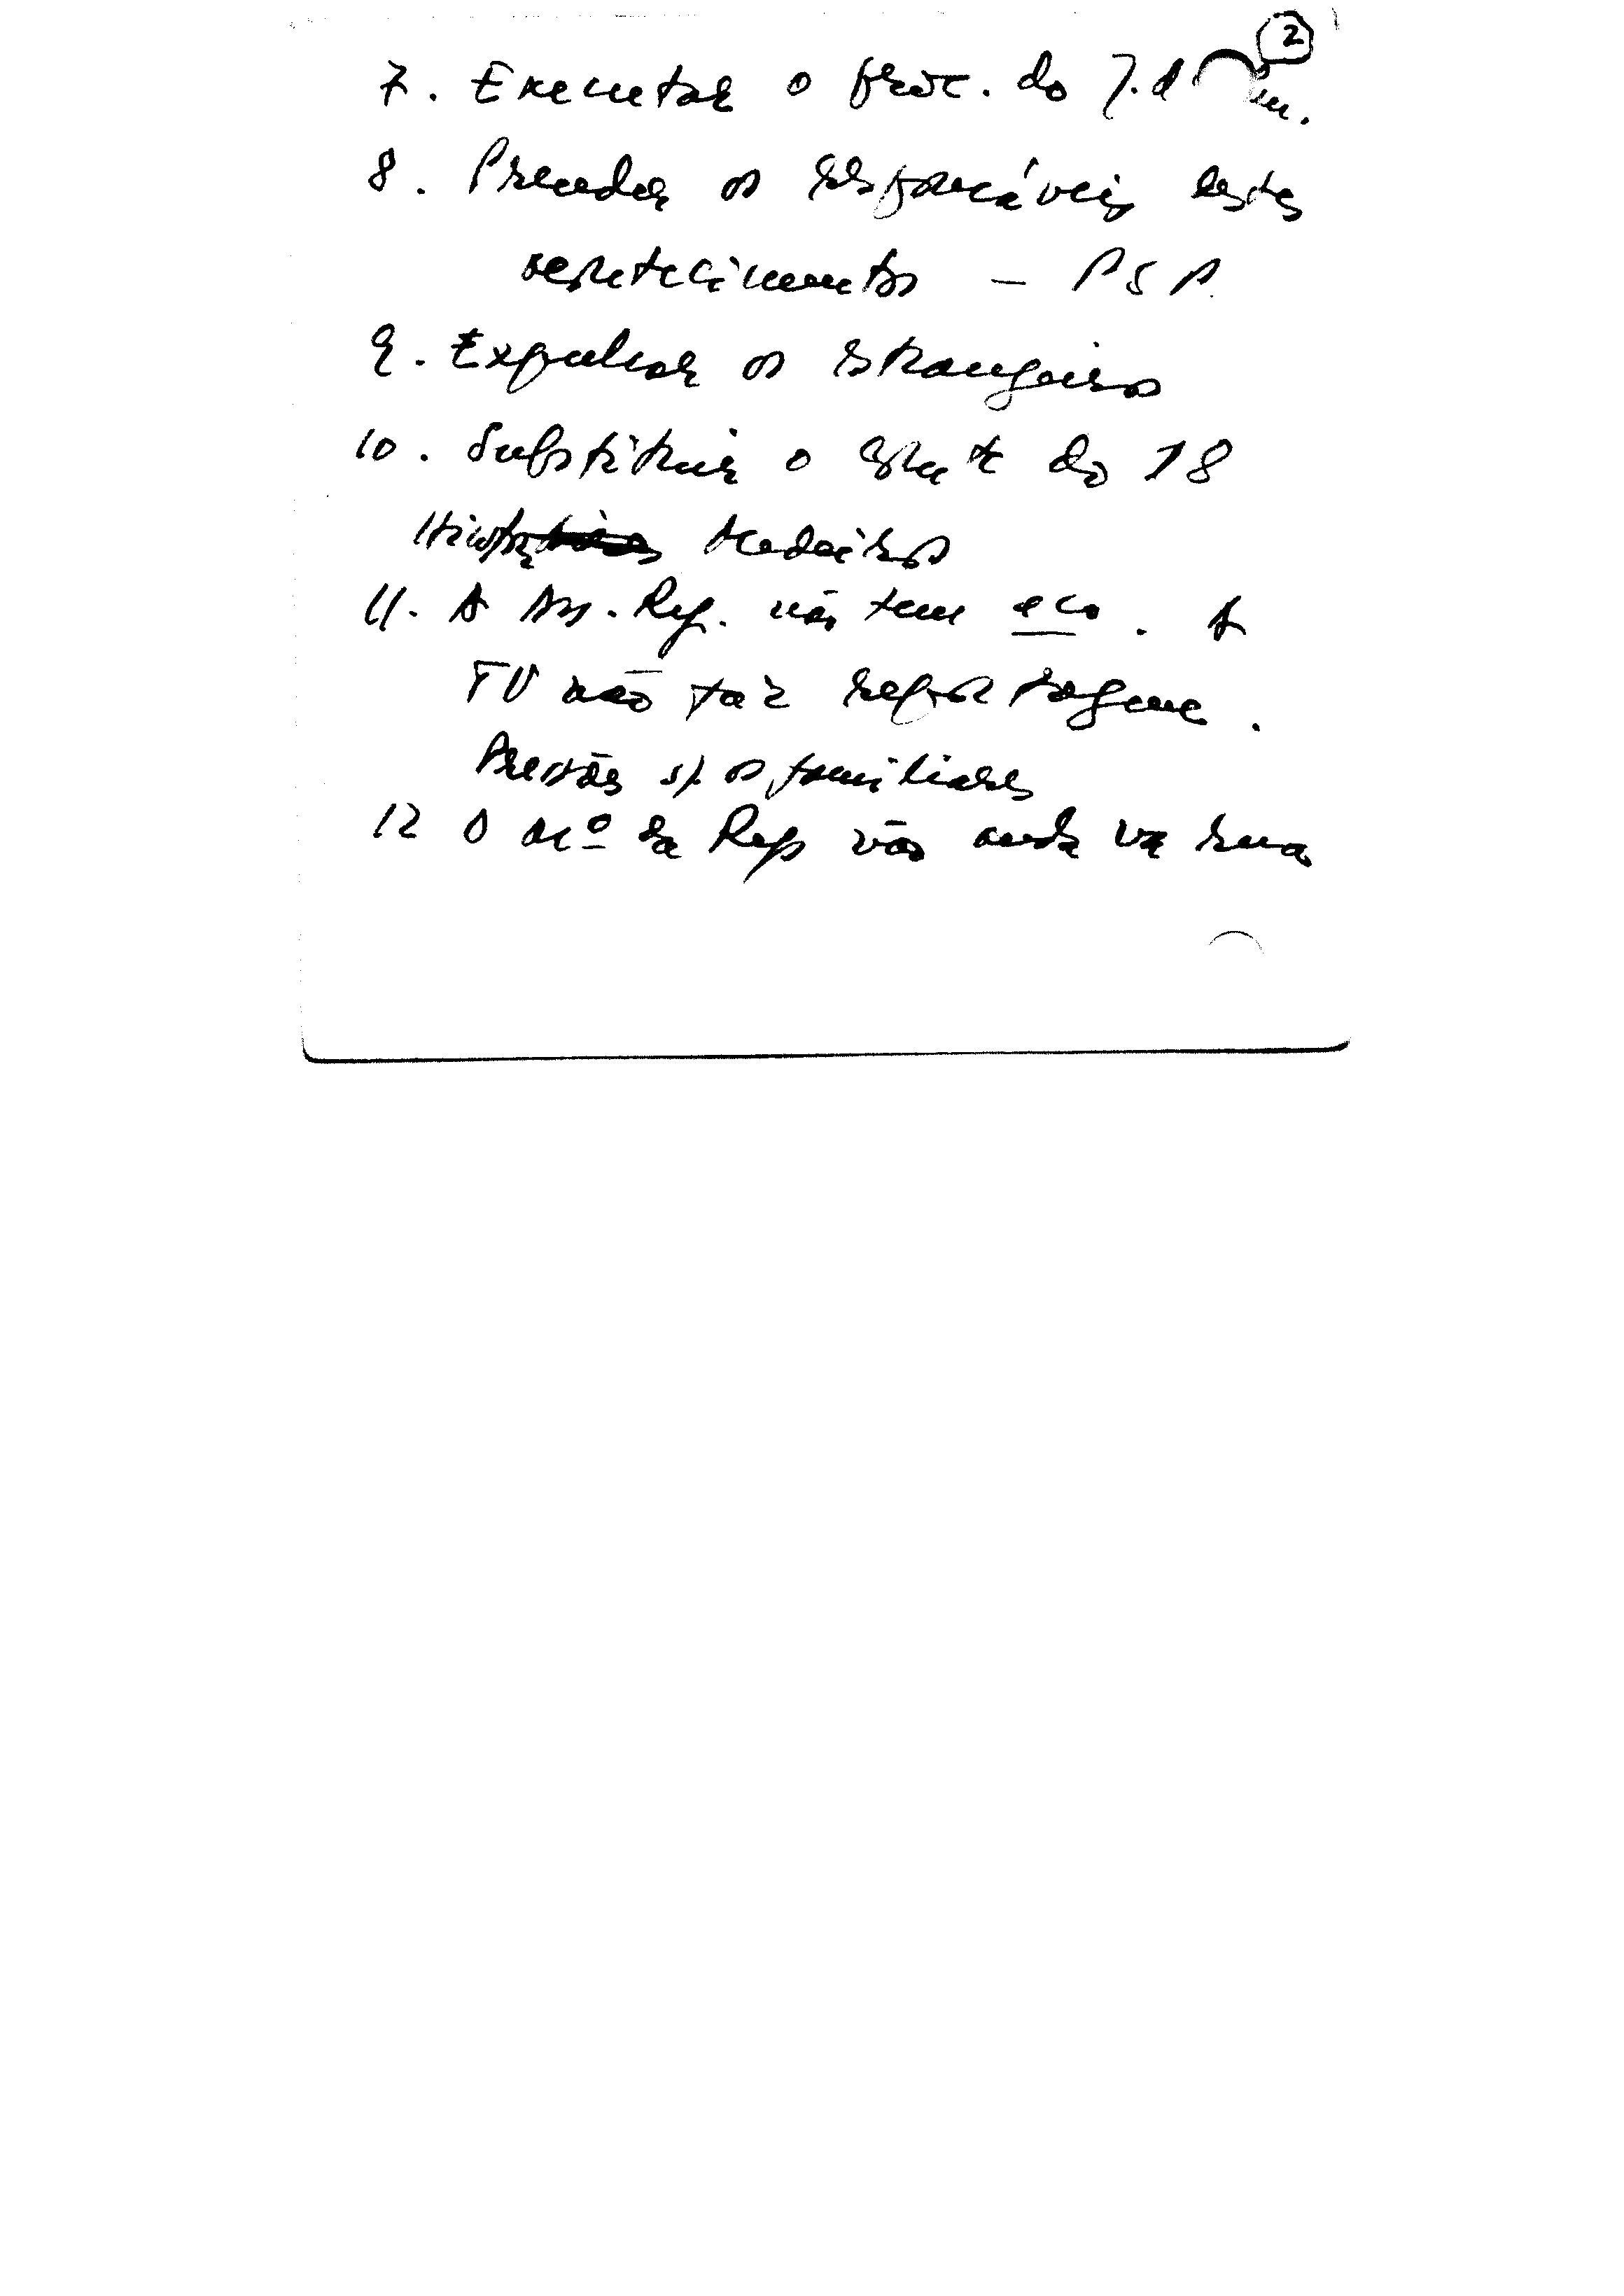 2
7. Executar o proc. do J. d
8. Prender os responsáveis estes
acontecimentos – PSP.
9. Expulsar os estrangeiros
10. Substituir o do 18
11. A Ass. Rep. não tem eco. A
TV não faz reportagem.
Pressões s/ os familiares
12 O da Rep não anda na rua